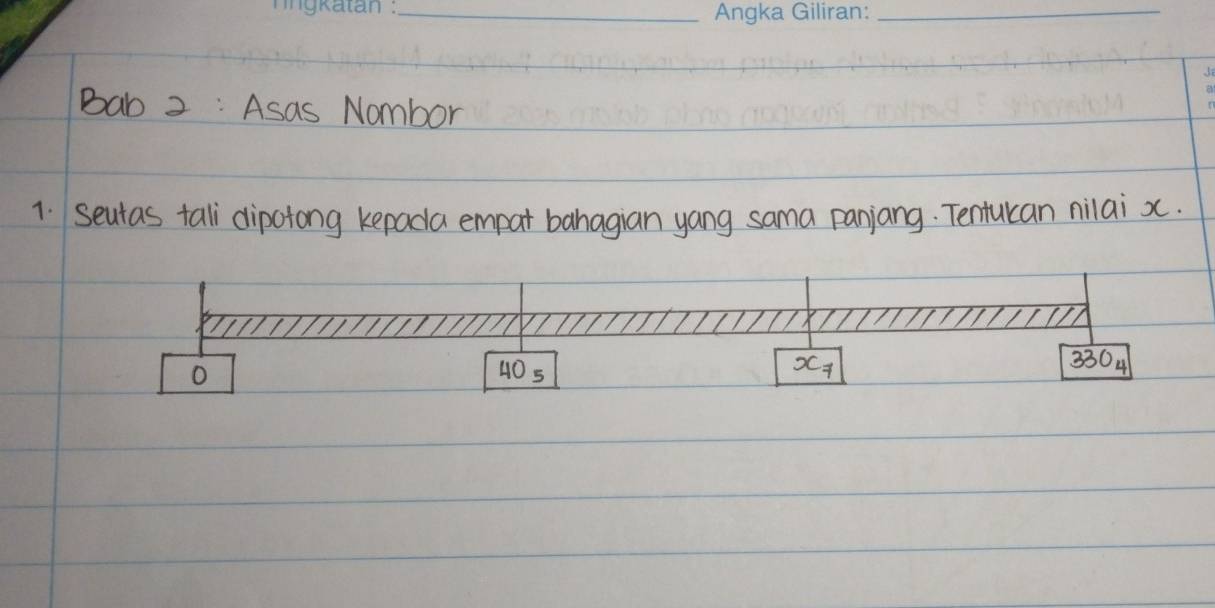 Tingkatan : Angka Giliran:
Bab 2 : Asas Nombor
1. Seutas tali dipotong kepada empat bahagian yang sama panjang. Tentukan nilai x.
0 40₅ x₇ 330₄